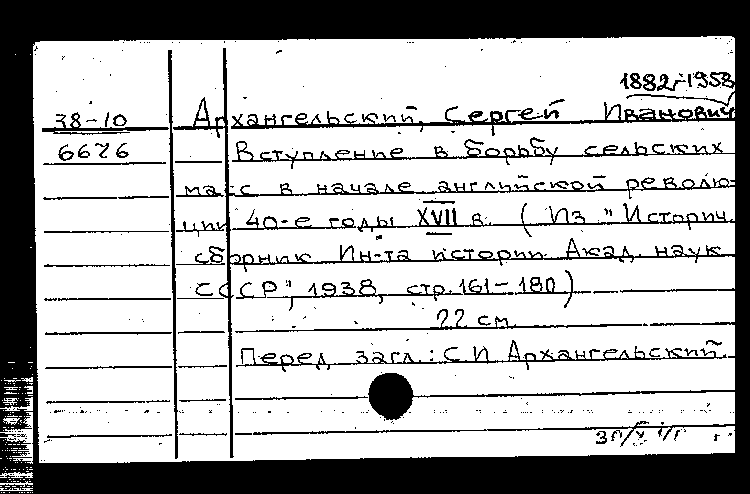 1882-1958
38-10 Архангельский, Сергей Иванович
6626 Вступление в борьбу сельских
масс в начале английской револю-
ции 40-е годы XVII в. (Из "Историч.
сборник Ин-та истории Акад. наук
СССР", 1938, стр. 161-180)
22 см
Перед загл.: С.И Архангельский.